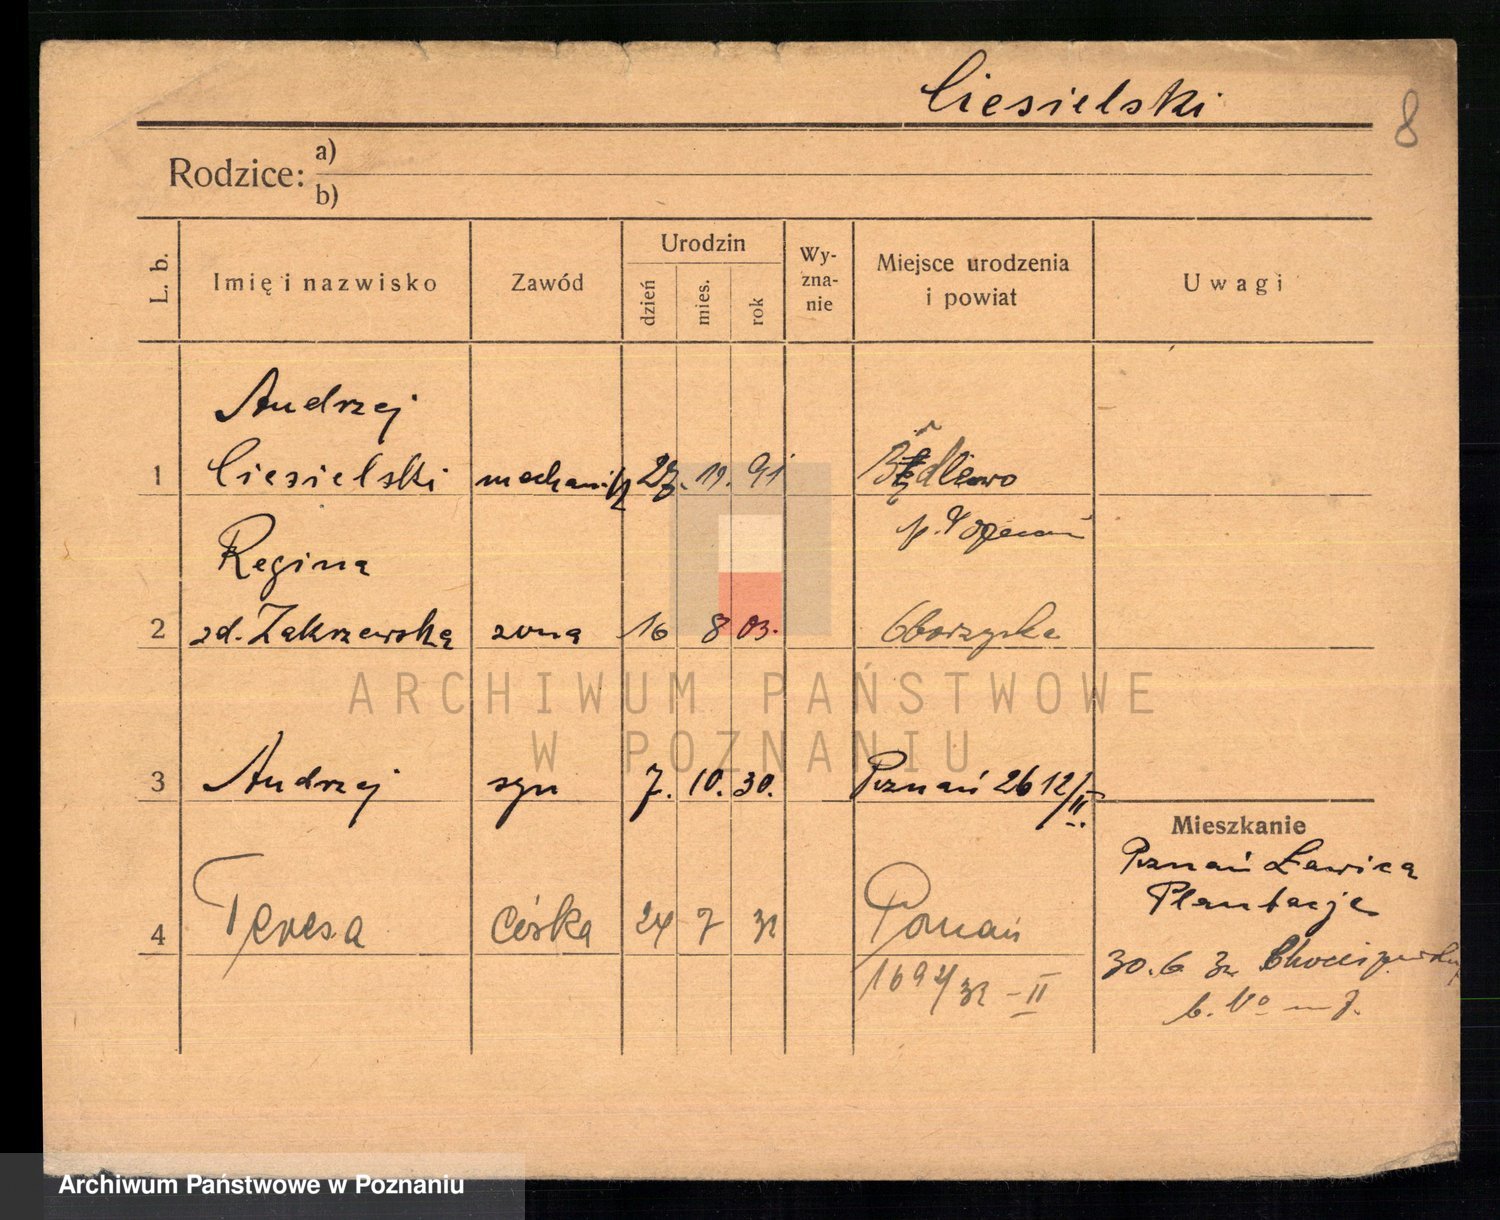 Ciesielski
8
Rodzice: a)
b)
L. b.
Imię i nazwisko
Zawód
Urodzin
dzień
mies.
rok
Wy-
zna-
nie
Miejsce urodzenia
i powiat
Uwagi
Andrzej
1 Ciesielski mechanik 91
p. Poznań
Regina
2 zd. Zakrzewska żona 16 8 03.
3 Andrzej syn 7. 10. 30. Poznań 2612/II.
4 Teresa córka 24 7 32 Poznań
1694/32 - II
Mieszkanie
Poznań Ławica
Plantacje
30.6 32
ARCHIWUM PAŃSTWOWE
W POZNANIU
Archiwum Państwowe w Poznaniu